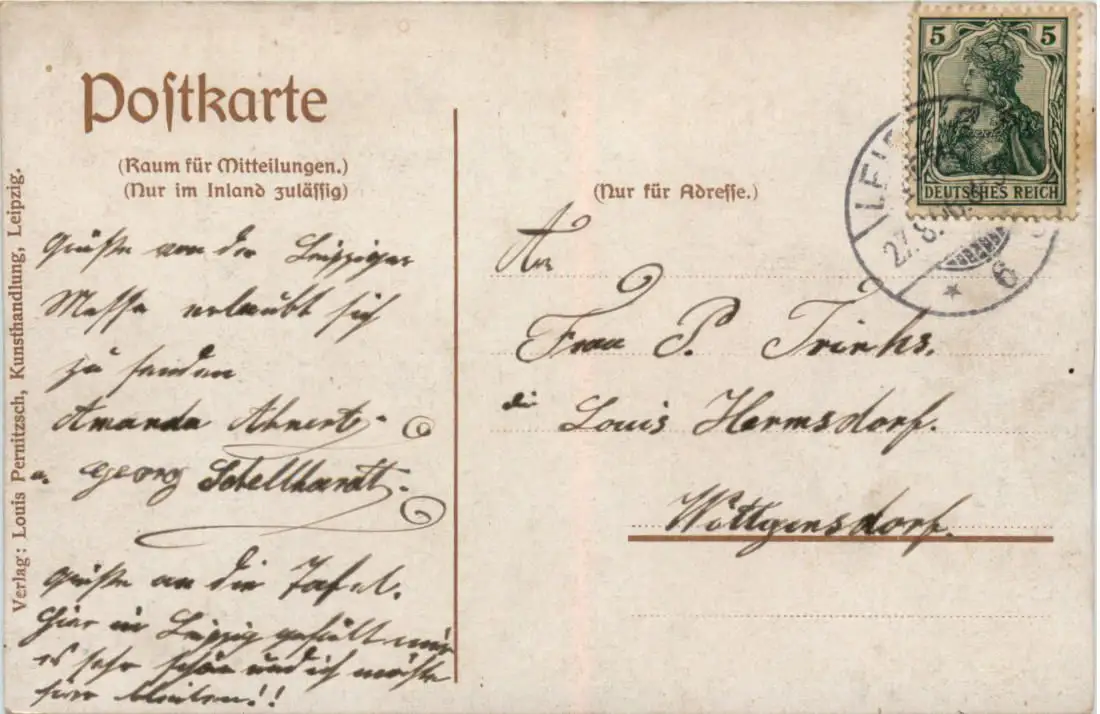 Postkarte
(Raum für Mitteilungen.)
(Nur im Inland zulässig)
Grüße von der Leipziger
Messe erlaubt sich
zu senden
Amanda Ahnert
u. Georg Schellhardt.
Grüße an die Tafel.
Hier in Leipzig gefällt mir
es sehr schön und ich möchte
hier bleiben!!
Verlag: Louis Pernitzsch, Kunsthandlung, Leipzig.
5 5
DEUTSCHES REICH
27.8.
* 6
(Nur für Adresse.)
An
Frau P.
Louis Hermsdorf.
Wittgensdorf.